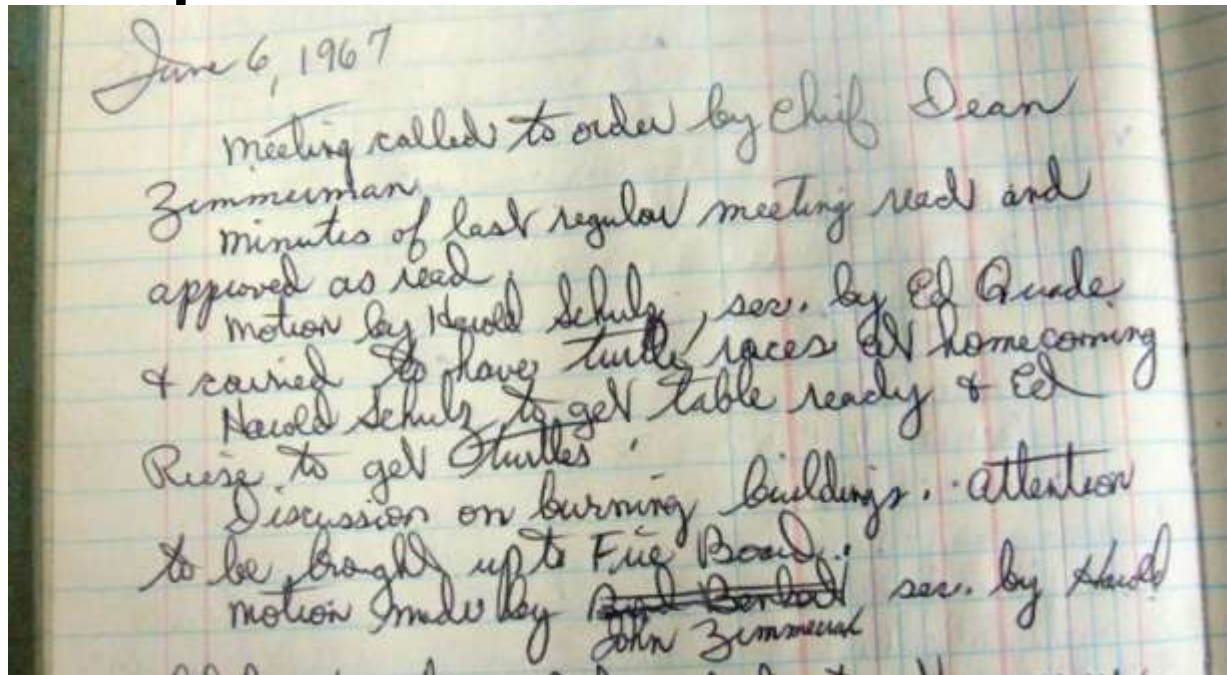 June 6, 1967
Meeting called to order by Chief Dean
Zimmerman
Minutes of last regular meeting read and
approved as read.
Motion by Harold Schulz, sec. by Ed Quade
& carried to have turtle races at homecoming
Harold Schulz to get table ready & Ed
Riese to get turtles.
Discussion on burning buildings. Attention
to be brought up to Fire Board.
Motion made by sec. by Harold
John Zimmerman